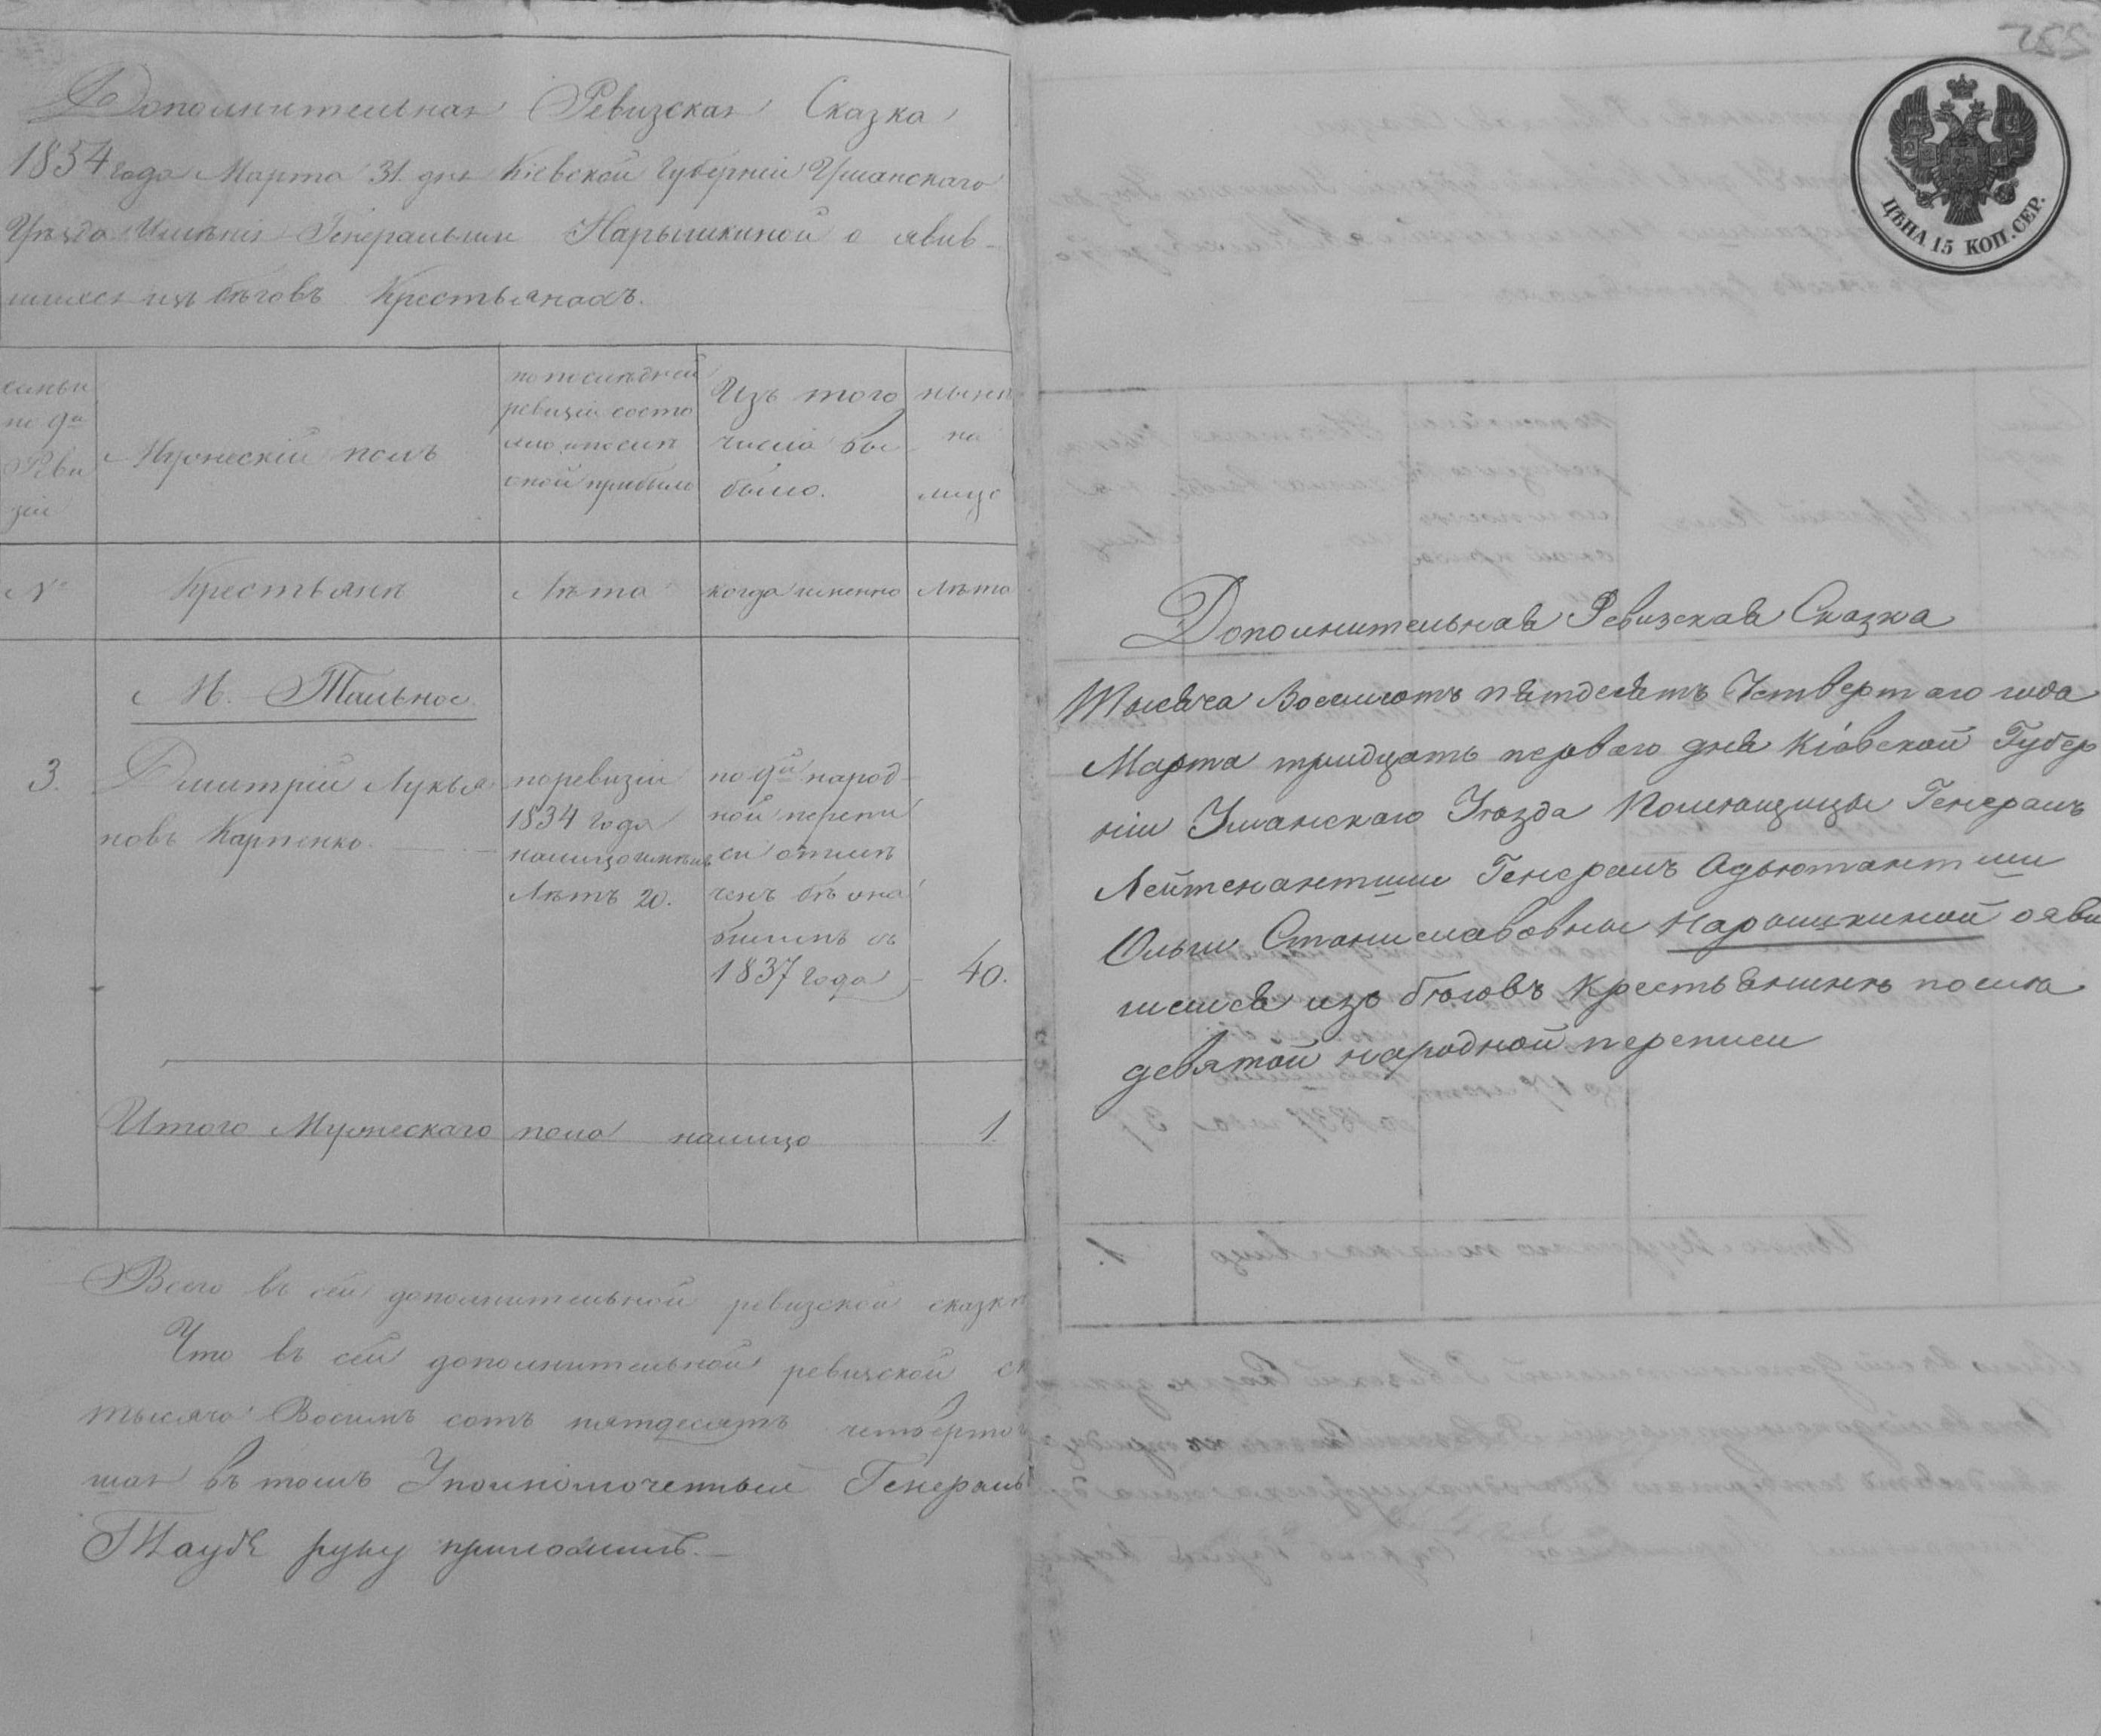 Дополнительная Ревизская Сказка
1854 года Марта 31. дня Кіевской Губерніи Уманскаго
Уѣзда Имѣнія Генеральши Нарышкиной о явив-
шихся изъ бѣговъ Крестьянахъ.
семьи
по 9й
Реви
зіи
Мужескій полъ
по послѣдней
ревизіи состо
яло и послѣ
оной прибыло
Изъ того
числа вы
было.
нынѣ
на
лицо
№
Крестьянѣ
Лѣта
когда именно
Лѣта
М. Тальное
3.
Дмитрій Лукья
новъ Карпенко.
по ревизіи
1834 года
Лѣтъ 20.
по 9й народ-
ной перепи
си отмѣ
ченъ
1837 года
40.
Итого Мужескаго пола налицо 1.
Всего въ сей дополнительной ревизской сказкѣ
Что въ сей дополнительной ревизской ск
тысяча Восемь сотъ пятдесятъ четверто
шая въ томъ Уполномоченный Генераль
Таубе руку приложилъ.
255
ЦѢНА 15 КОП. СЕР.
Дополнительная Ревизская Сказка
Тысяча Восемсотъ пятдесятъ Четвертаго года
Марта тридцать перваго дня Кіевской Губер
ніи Уманскаго Уѣзда Помѣщицы Генералъ
Лейтенантши Генералъ Адьютантши
Ольги Станиславовны Нарышкиной о яви
шемся изъ бѣговъ Крестьянинѣ послѣ
девятой народной переписи